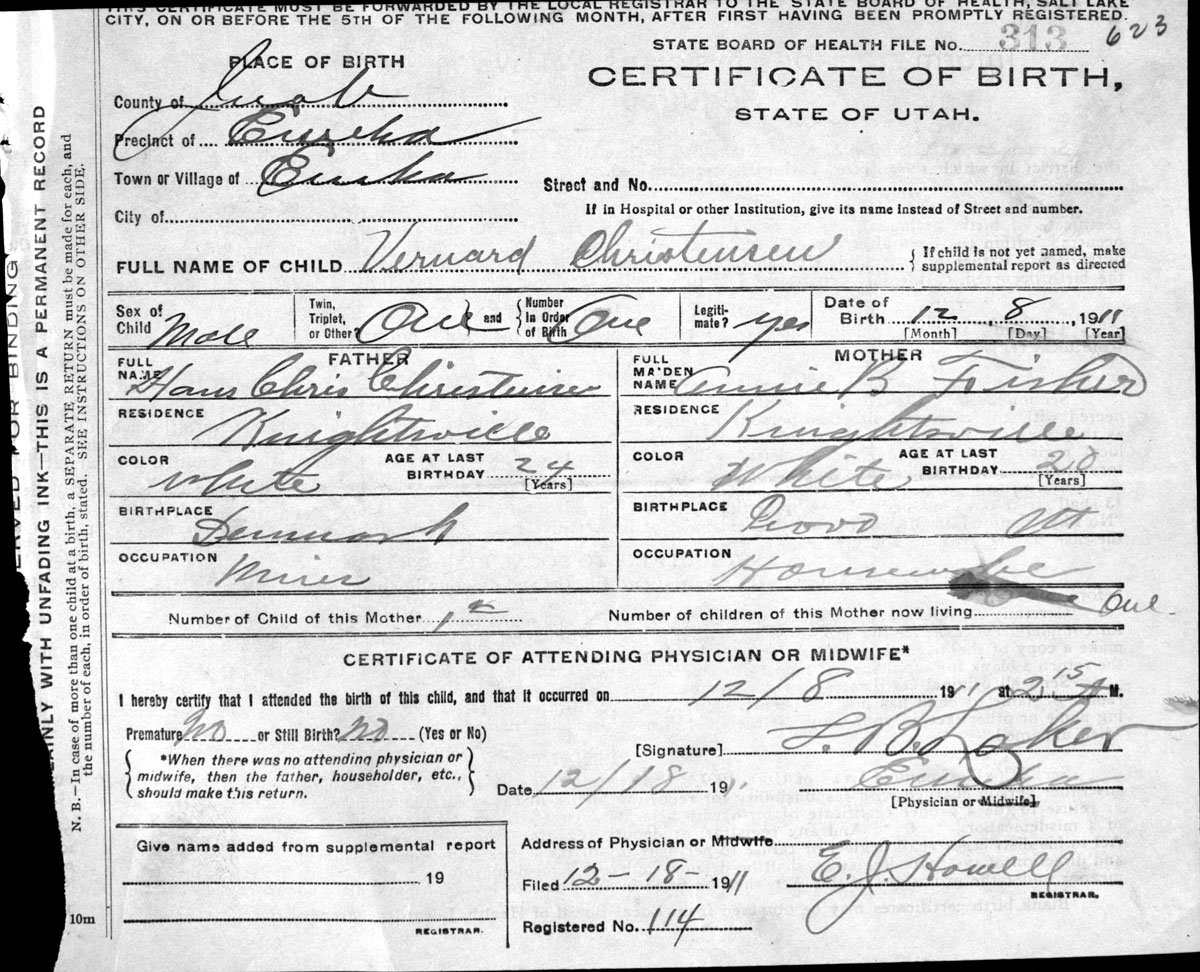 THIS CERTIFICATE MUST BE FORWARDED BY THE LOCAL REGISTRAR TO THE STATE BOARD OF HEALTH, SALT LAKE
CITY, ON OR BEFORE THE 5TH OF THE FOLLOWING MONTH, AFTER FIRST HAVING BEEN PROMPTLY REGISTERED.
STATE BOARD OF HEALTH FILE No. 313 623
PLACE OF BIRTH
CERTIFICATE OF BIRTH,
STATE OF UTAH.
County of Juab
Precinct of Eureka
Town or Village of Eureka
Street and No.
City of
If in Hospital or other Institution, give its name instead of Street and number.
FULL NAME OF CHILD Vernard Christensen
{ If child is not yet named, make
supplemental report as directed
Sex of Child Male
Twin, Triplet, or Other? One and Number in Order of Birth One
Legiti-mate? yes
Date of Birth 12, 8, 1911
[Month] [Day] [Year]
FATHER
FULL NAME Hans Chris Christensen
RESIDENCE Knightsville
COLOR White
AGE AT LAST BIRTHDAY 24
[Years]
BIRTHPLACE Denmark
OCCUPATION Miner
MOTHER
FULL MAIDEN NAME Annie B Fisher
RESIDENCE Knightsville
COLOR White
AGE AT LAST BIRTHDAY 20
[Years]
BIRTHPLACE Provo Ut
OCCUPATION Housewife
Number of Child of this Mother 1st
Number of children of this Mother now living One
CERTIFICATE OF ATTENDING PHYSICIAN OR MIDWIFE*
I hereby certify that I attended the birth of this child, and that it occurred on 12/8 1911 at 2 15 M.
Premature No or Still Birth? No (Yes or No)
*When there was no attending physician or
midwife, then the father, householder, etc.,
should make this return.
[Signature]
Date 12/18 191 Eureka
[Physician or Midwife]
Give name added from supplemental report
19
REGISTRAR.
Address of Physician or Midwife
Filed 12-18-1911 E. J. Howell
REGISTRAR.
Registered No. 114
10m
RESERVED FOR BINDING
PLAINLY WITH UNFADING INK—THIS IS A PERMANENT RECORD
N. B.—In case of more than one child at a birth, a SEPARATE RETURN must be made for each, and
the number of each, in order of birth, stated. SEE INSTRUCTIONS ON OTHER SIDE.